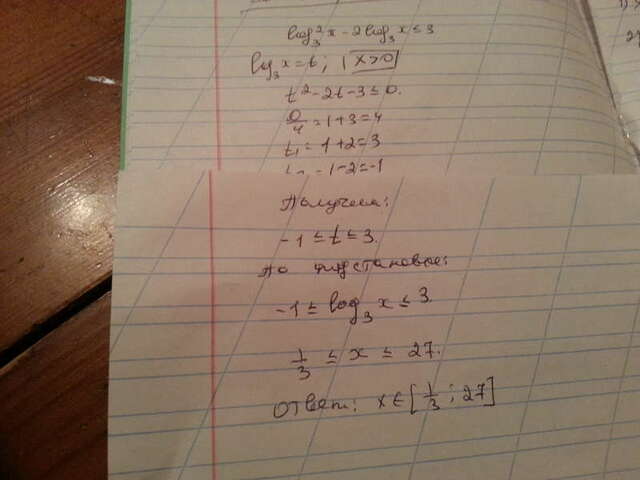 log₃²x - 2log₃x ≤ 3
log₃x = t; | x>0
t² - 2t - 3 ≤ 0.
D/4 = 1+3=4
t₁ = 1+2=3
= 1-2=-1
Получаем:
-1 ≤ t ≤ 3.
По подстановке:
-1 ≤ log₃ x ≤ 3.
1/3 ≤ x ≤ 27.
Ответ: x ∈ [1/3; 27]